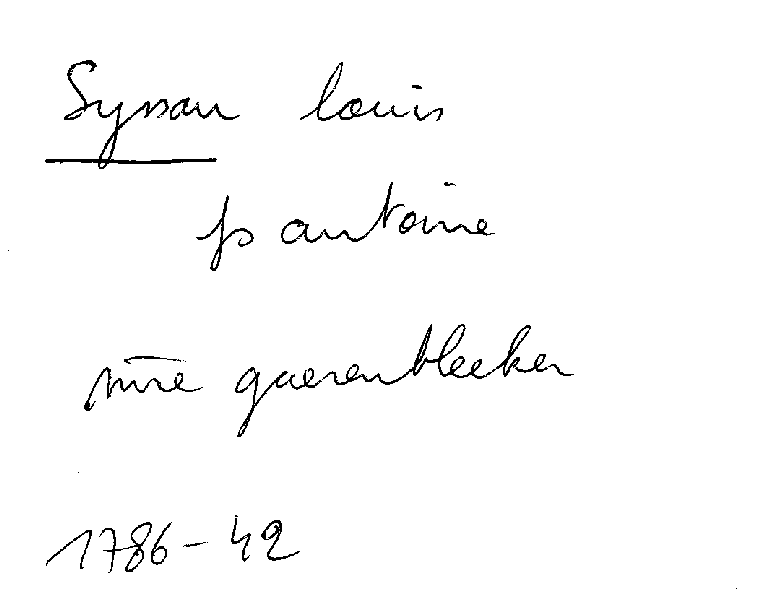 Synau louis
fs antoine
mre guerenbleeker
1786-42